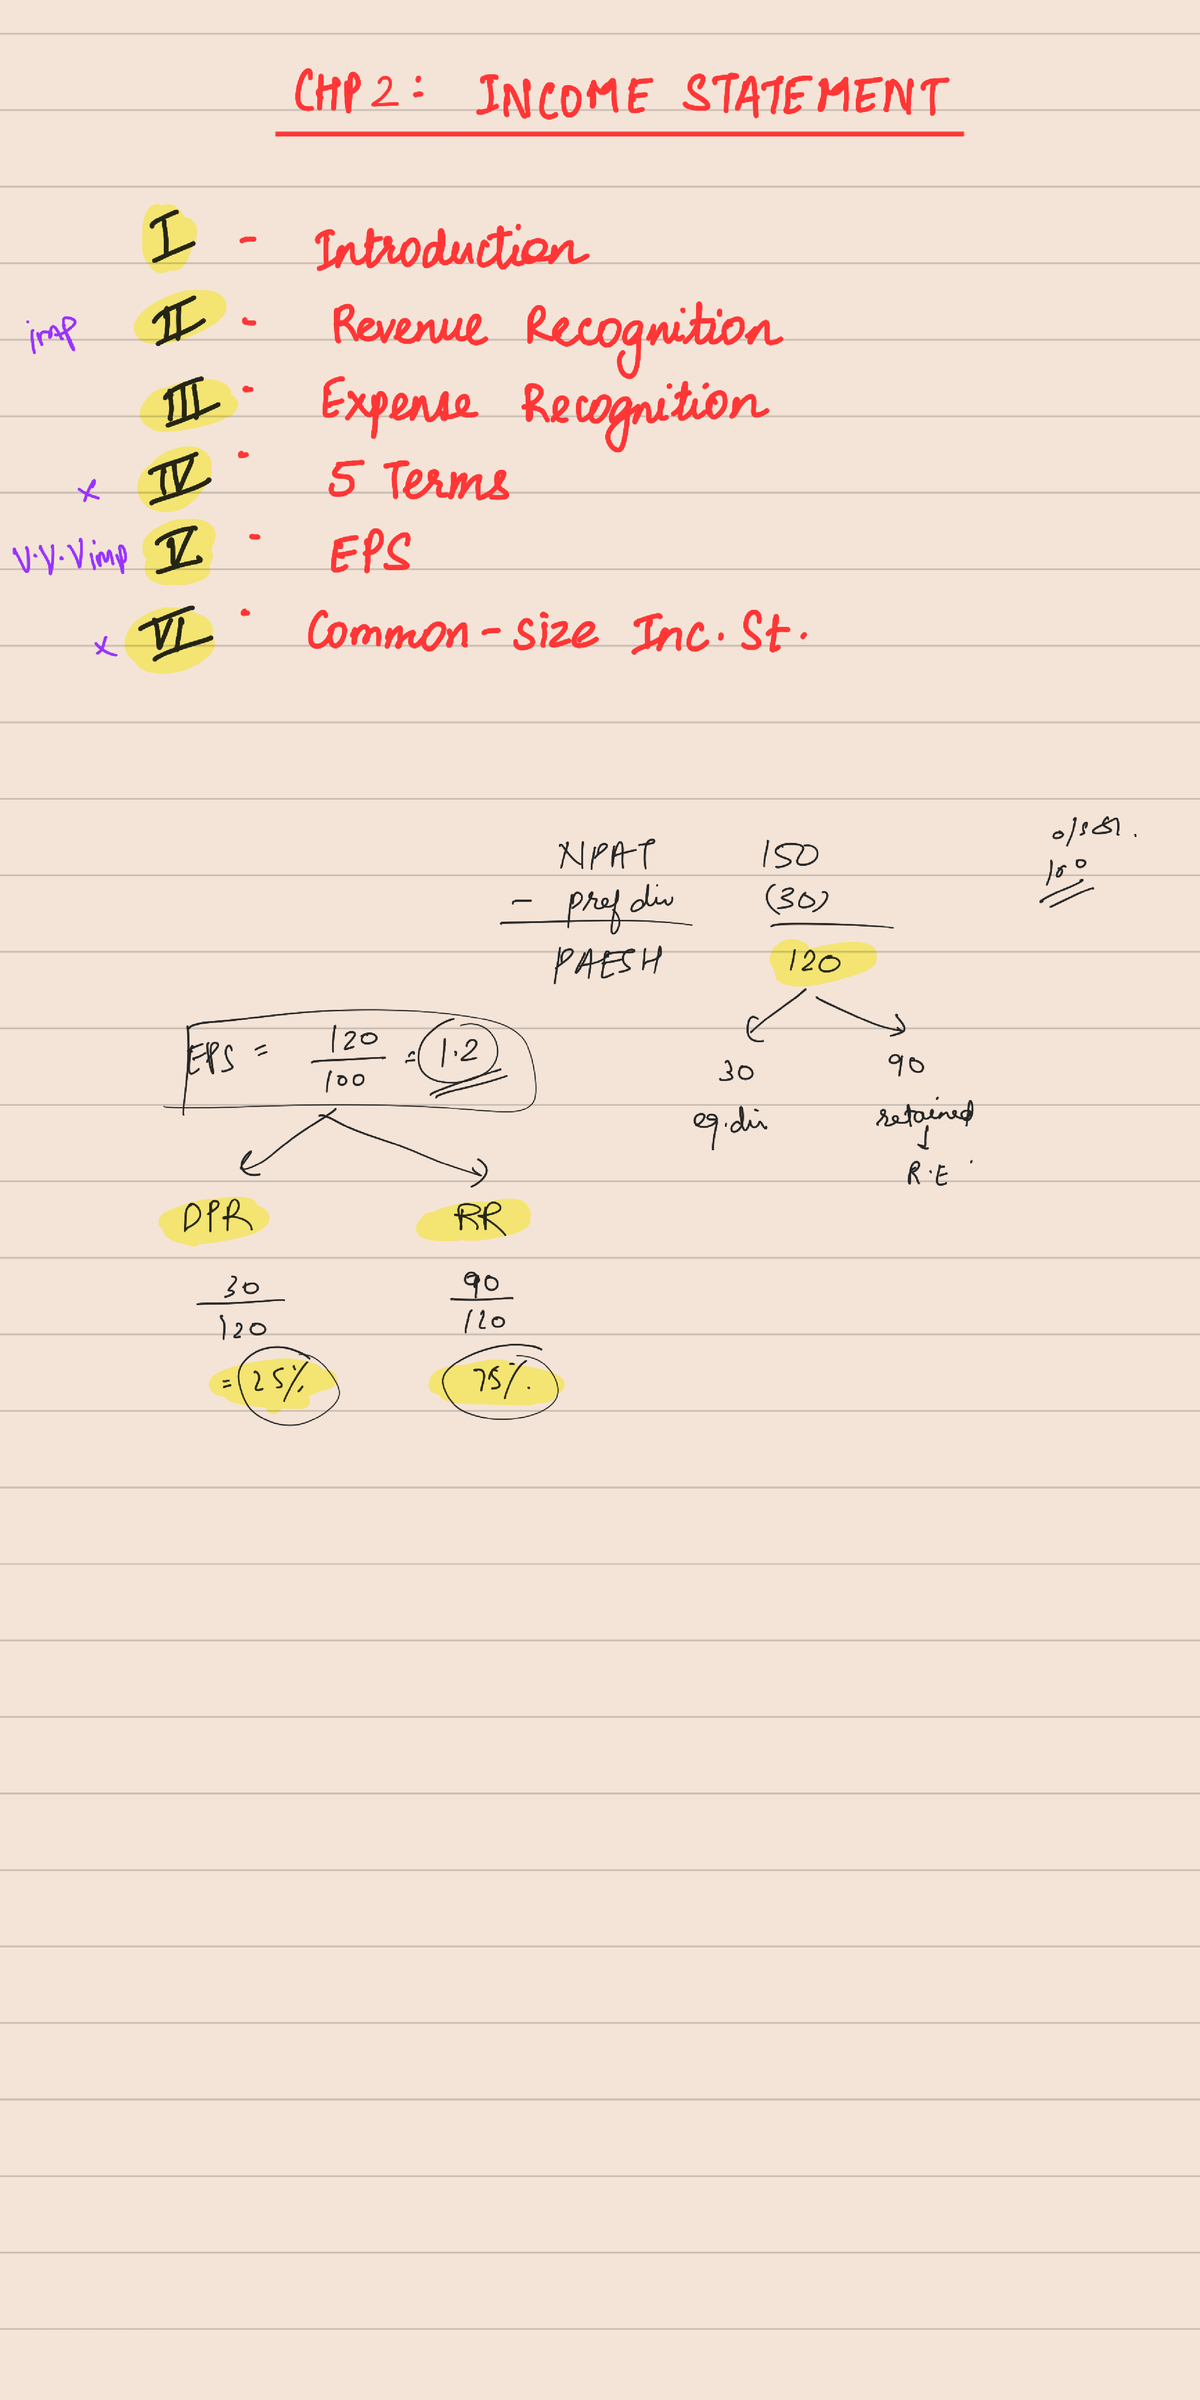 CHP 2: INCOME STATEMENT
I - Introduction
imp II - Revenue Recognition
III - Expense Recognition
x IV - 5 Terms
V.V.V imp V - EPS
x VI - Common-size Inc. St.
NPAT 150
100
- pref div (30)
PAESH 120
EPS = 120/100 = 1.2
30 90
eq. div retained
R.E
DPR RR
30/120 90/120
= 25% 75%.